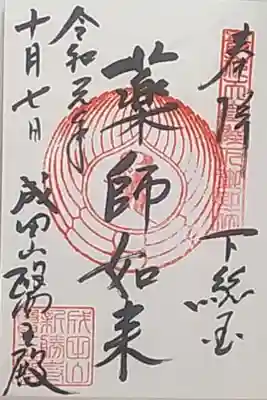 奉拝
下総国
薬師如来
令和元年
十月七日
成田山醫王殿
成田山
新勝寺